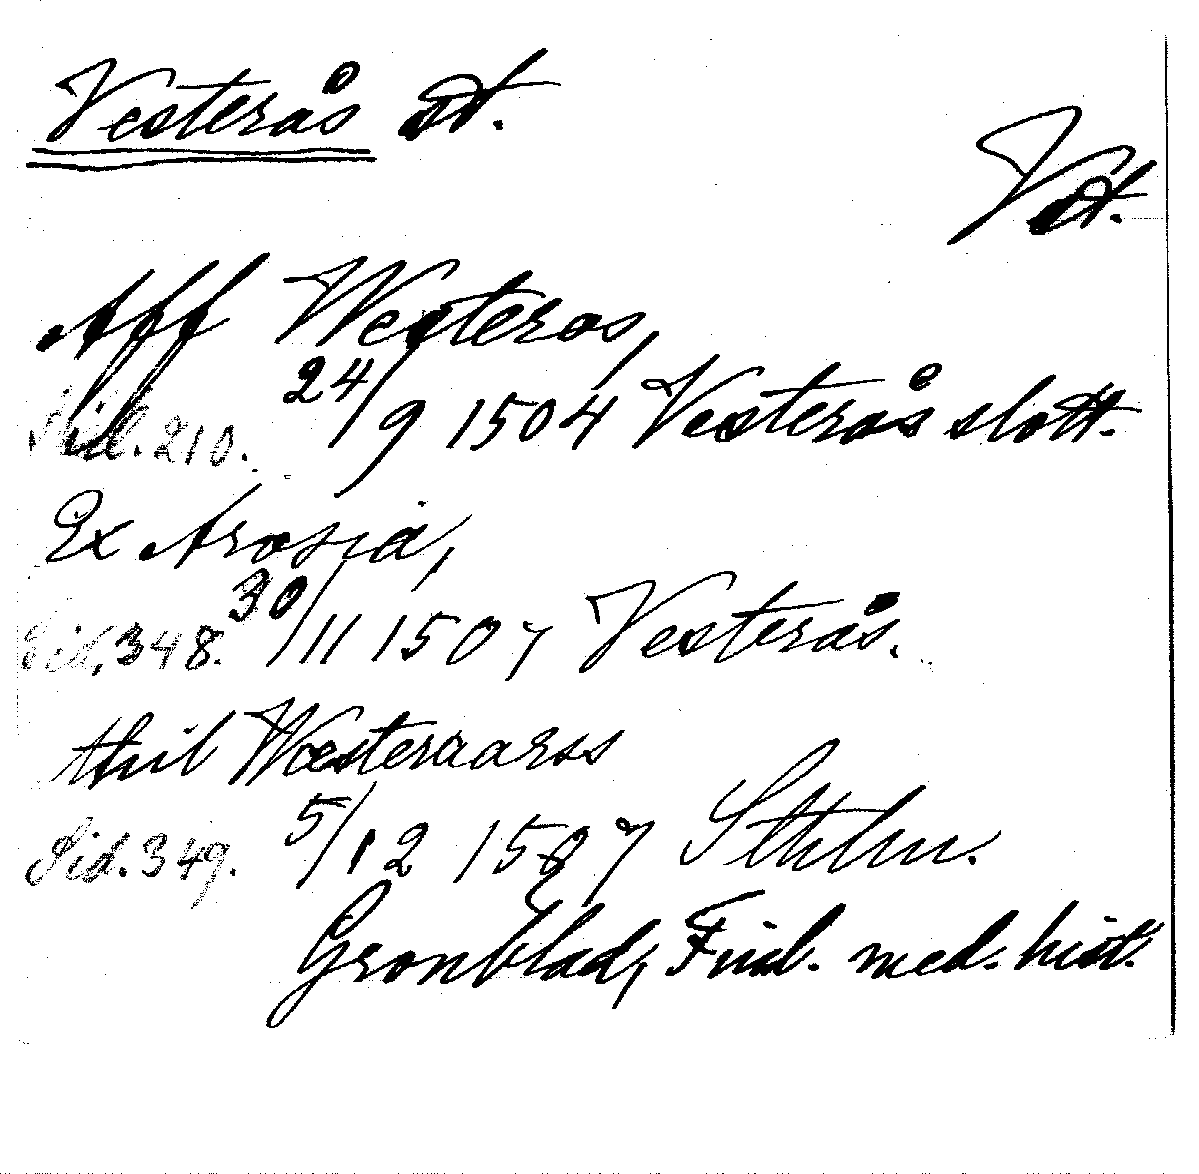 Vesterås st.
Vst.
Aff Westeros,
Sid. 210. 24/9 1504 Vesterås slott.
Ex Arosia,
Sid. 348. 30/11 1507 Vesterås.
thil Wæsteraarss
Sid. 349. 5/12 1507 Sthlm.
Gronblad, Finl. med. hist.